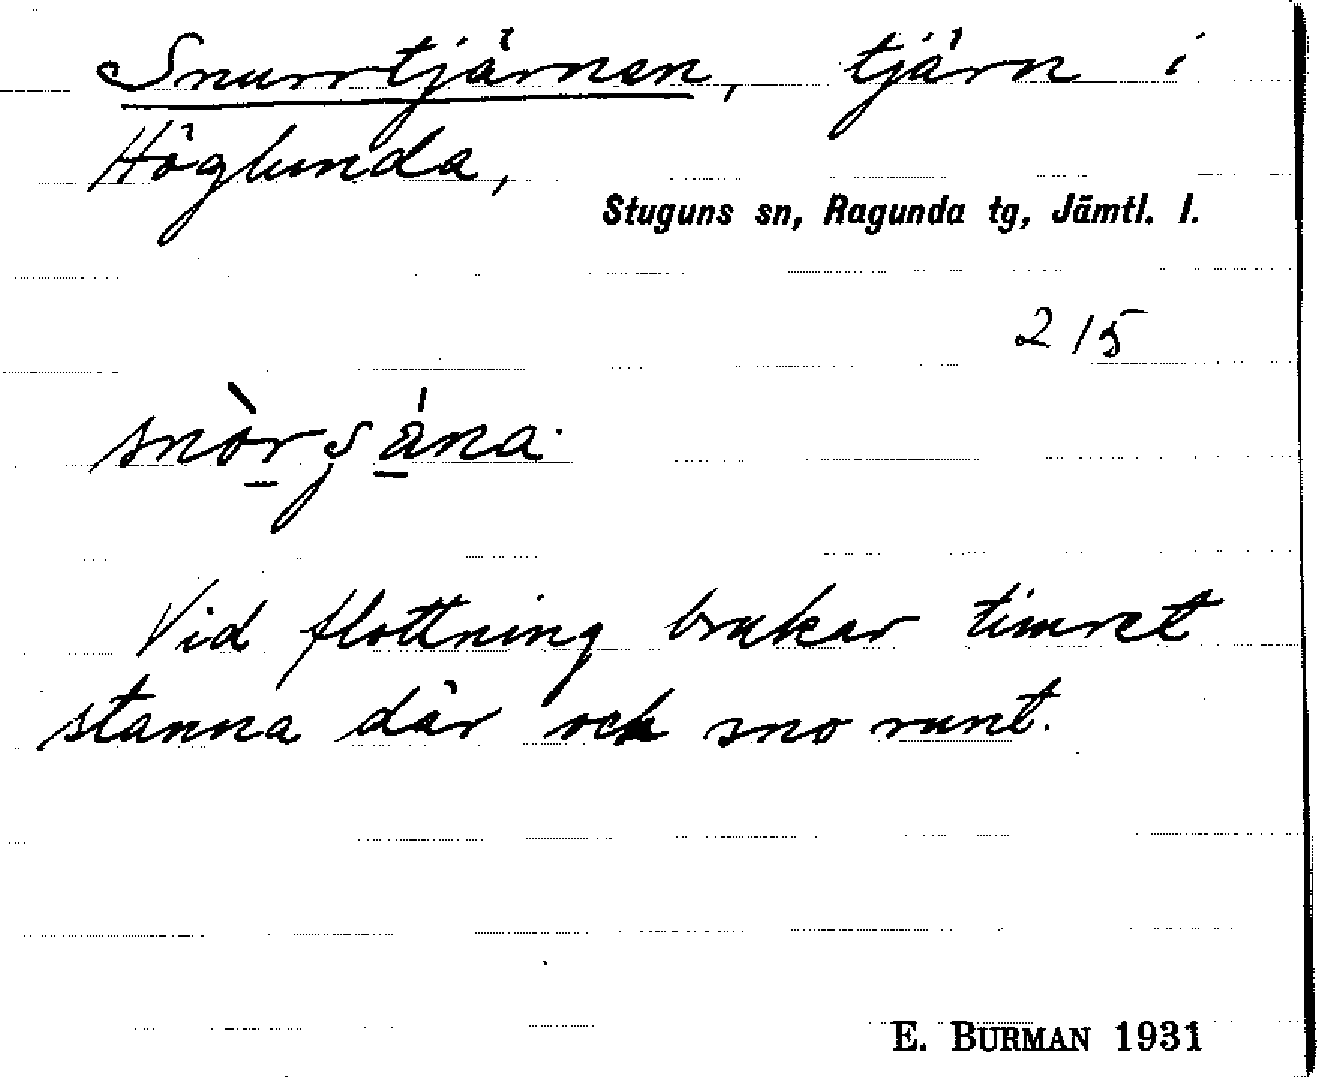 Snurrtjärnen, tjärn i
Höglunda,
Stuguns sn, Ragunda tg, Jämtl. l.
215
snòrʃána
Vid flottning brukar timret
stanna där och sno runt.
E. BURMAN 1931